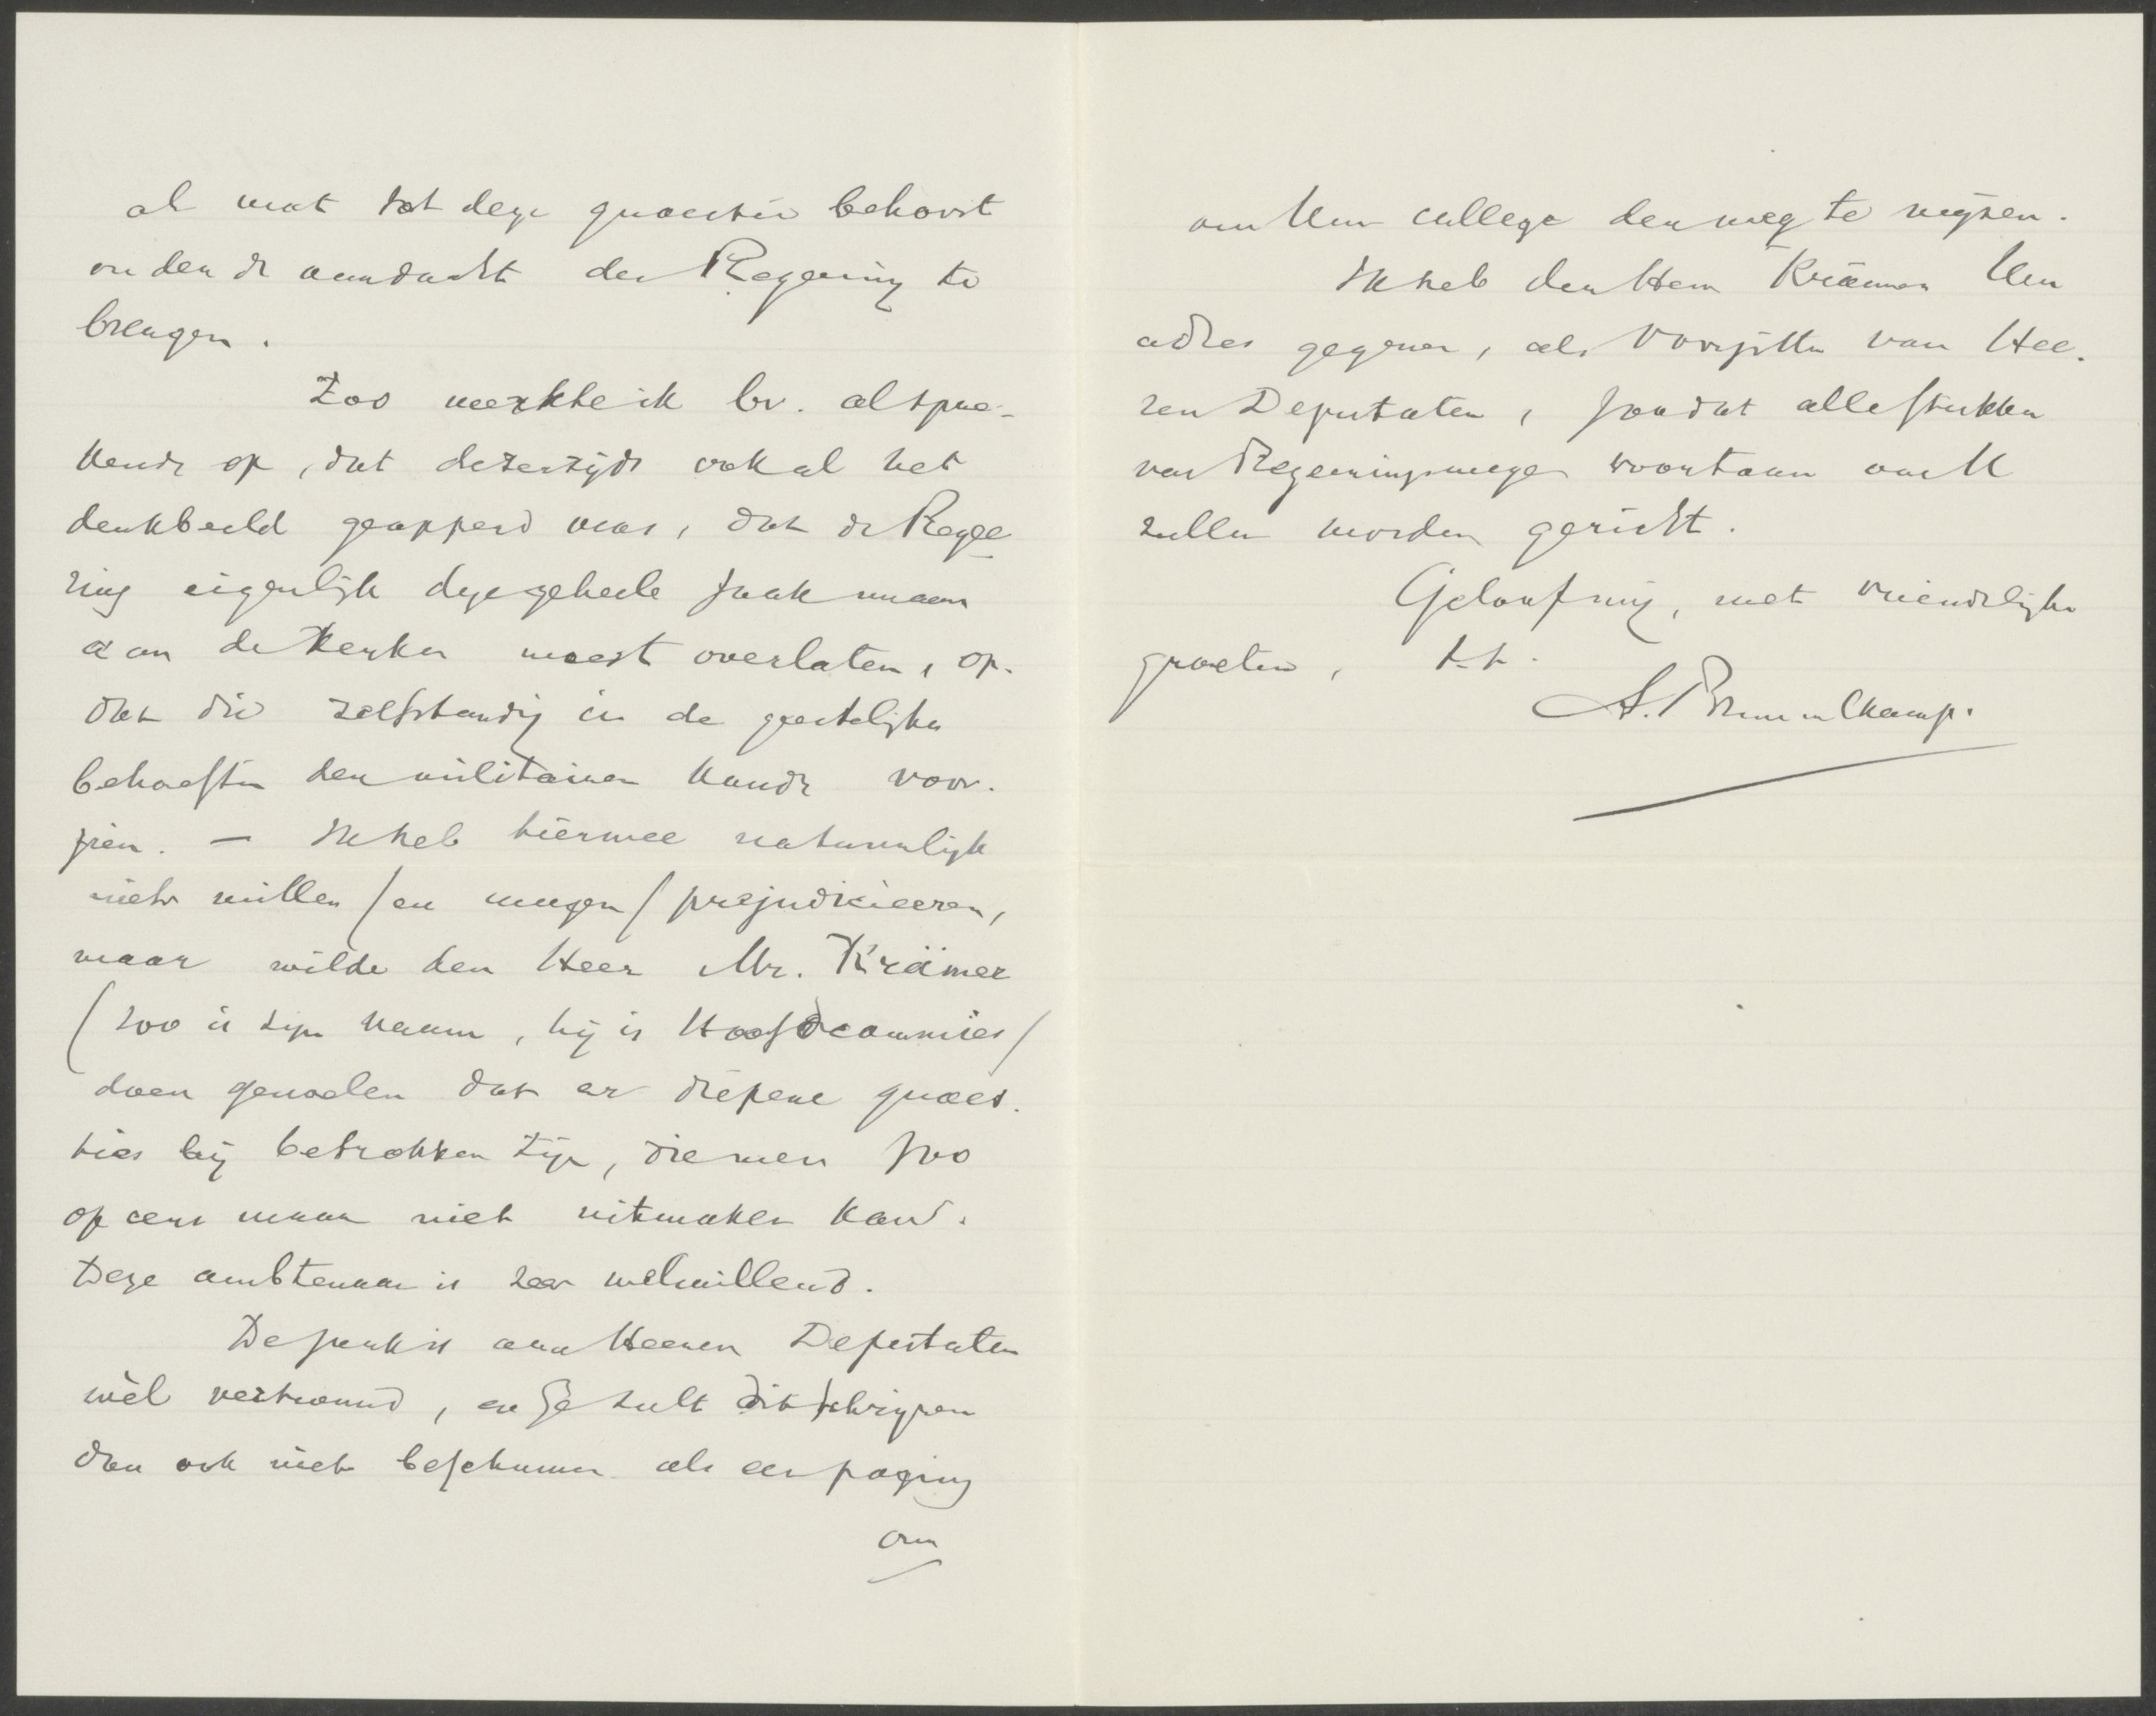 al wat tot deze quaestie behoort
onder de aandacht der Regeering te
brengen.
Zoo merkte ik bv. al spre-
kende op, dat dezerzijds ook al het
denkbeeld geopperd was, dat de Regee
ring eigenlijk deze geheele zaak maar
aan de Kerken moest overlaten, op-
dat die zelfstandig in de geestelijke
behoeften der militairen konde voor-
zien. — Ik heb hiermee natuurlijk
niet willen (en mogen) prejudicieeren,
maar wilde den Heer Mr. Krämer
(zoo is zijn naam, hij is Hoofdcommies)
doen gevoelen dat er diepere quaes-
ties bij betrokken zijn, die men zoo
op eens maar niet uitmaken kan.
Deze ambtenaar is zeer welwillend.
De zaak is aan Heeren Deputaten
wèl vertrouwd, en Ge zult dit schrijven
dan ook niet beschouwen als een poging
om
om Uw college den weg te wijzen.
Ik heb den Heer Krämer Uw
adres gegeven, als Voorzitter van Hee-
ren Deputaten, zoodat alle stukken
van Regeeringswege voortaan aan U
zullen worden gericht.
Geloof mij, met vriendelijke
groeten, t.t.
A. Brummelkamp.